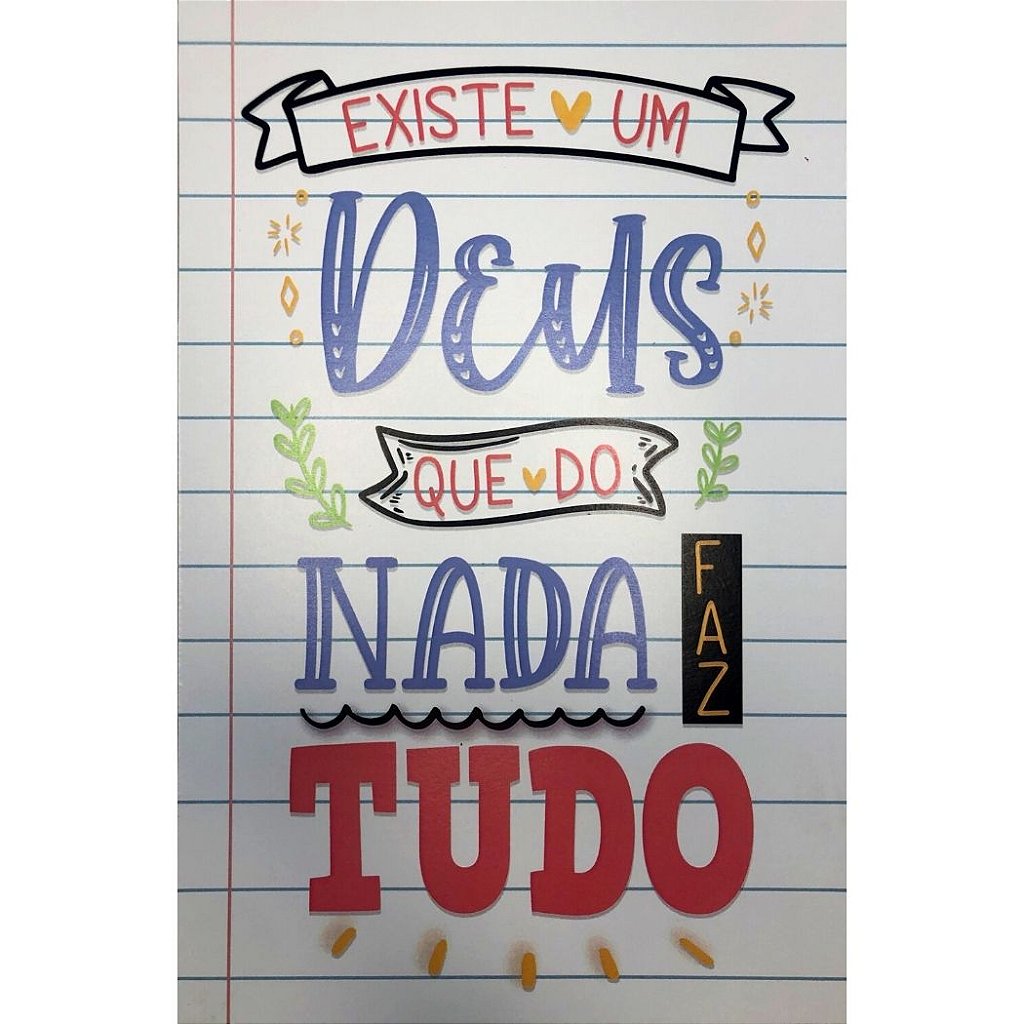 EXISTE UM
DEUS
QUE DO
NADA FAZ
TUDO